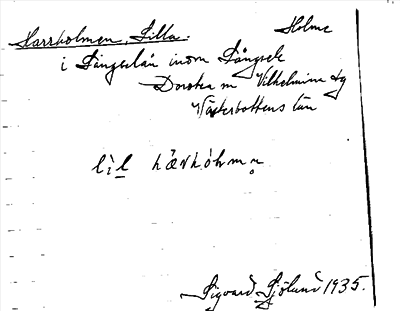 Harrholmen, Lilla. Holme
i Långselån inom Långsele
Dorotea m Vilhelmina tg
Västerbottens län
lìl hárhòlmn̥
Sigvard Sjölund 1935.